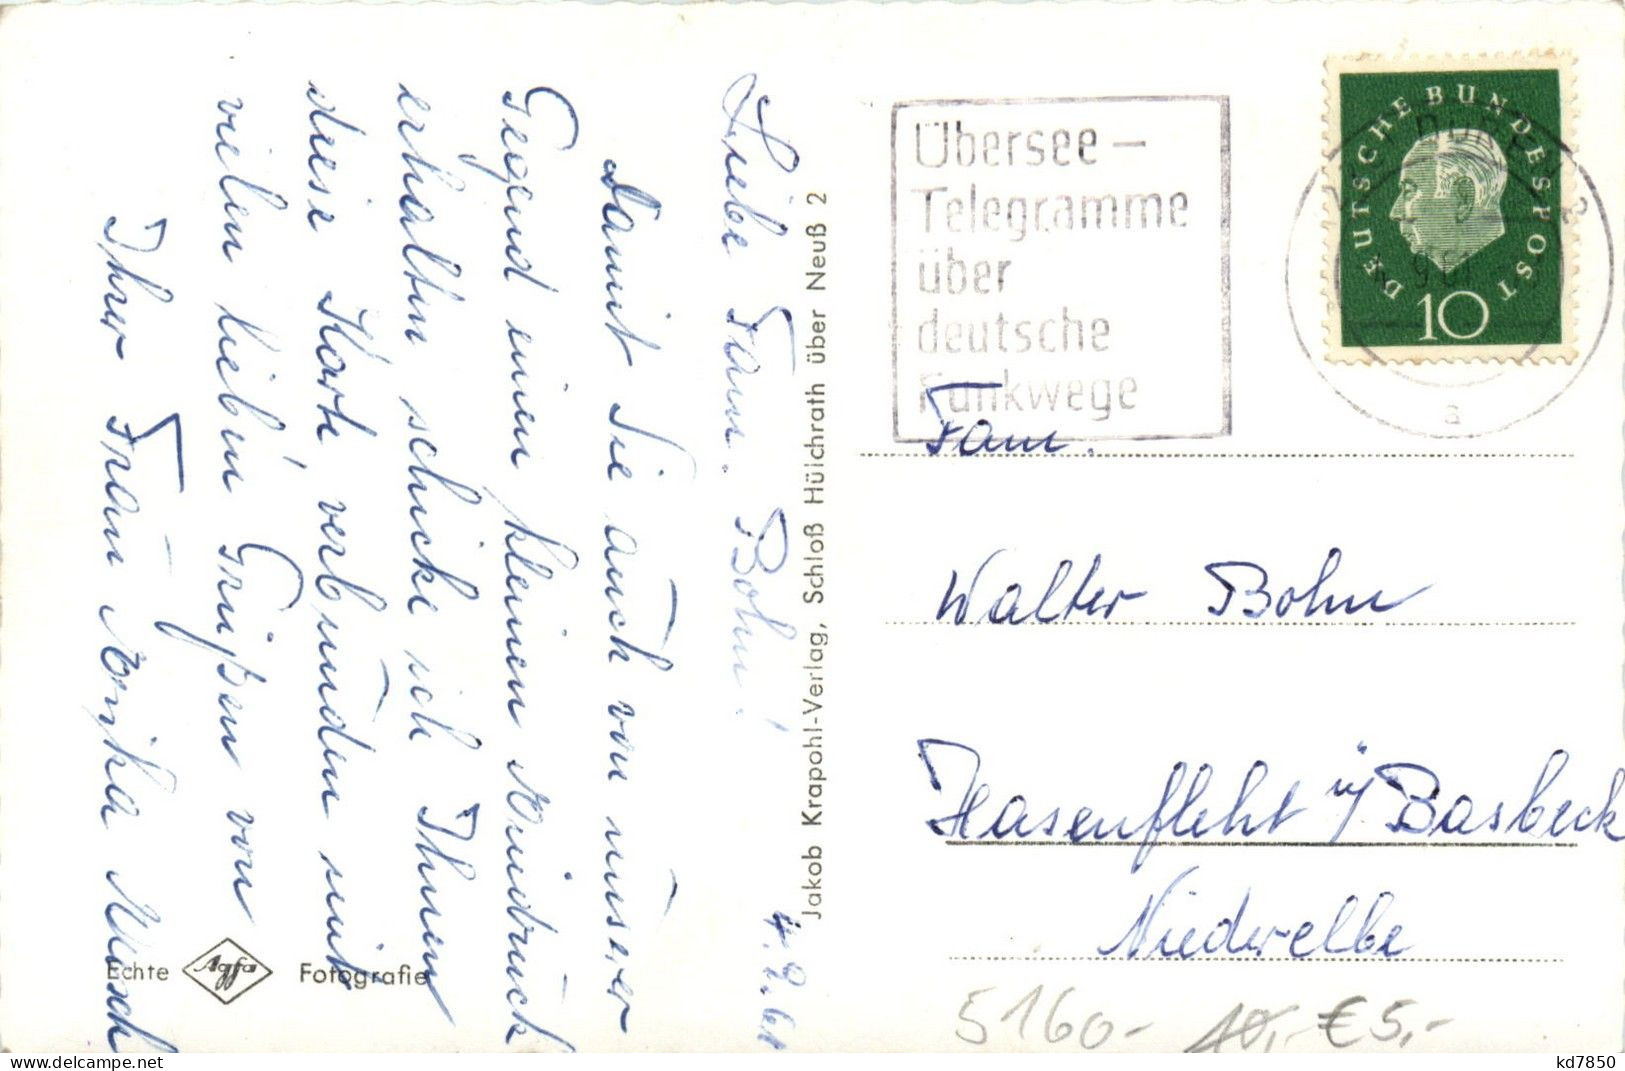 Liebe Fam. Bohn!
4.9.61
Damit Sie auch von unserer
Gegend einen kleinen Eindruck
erhalten schicke ich Ihnen
diese Karte verbunden mit
vielen lieben Grüßen von
Ihrer Frau Monika
Echte Agfa Fotografie
Jakob Krapohl-Verlag, Schloß Hülchrath über Neuß 2
Übersee-
Telegramme
über
deutsche
Funkwege
DEUTSCHE BUNDESPOST
10
DÜREN
a
Fam.
Walter Bohn
Hasenfleht ü/ Basbeck
Niederelbe
5160,- 10,- €5,-
www.delcampe.net
kd7850